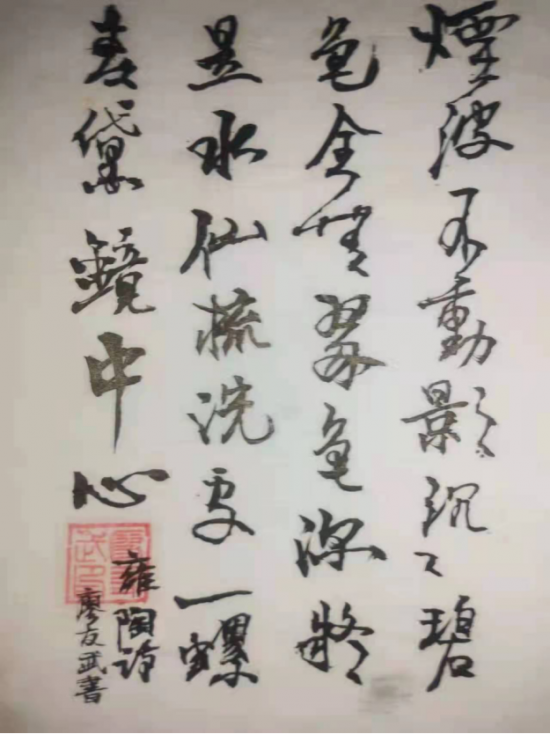 煙波不動影沉々碧
色全無翠色深疑
是水仙梳洗處一螺
青黛鏡中心
雍陶詩
廖友武書